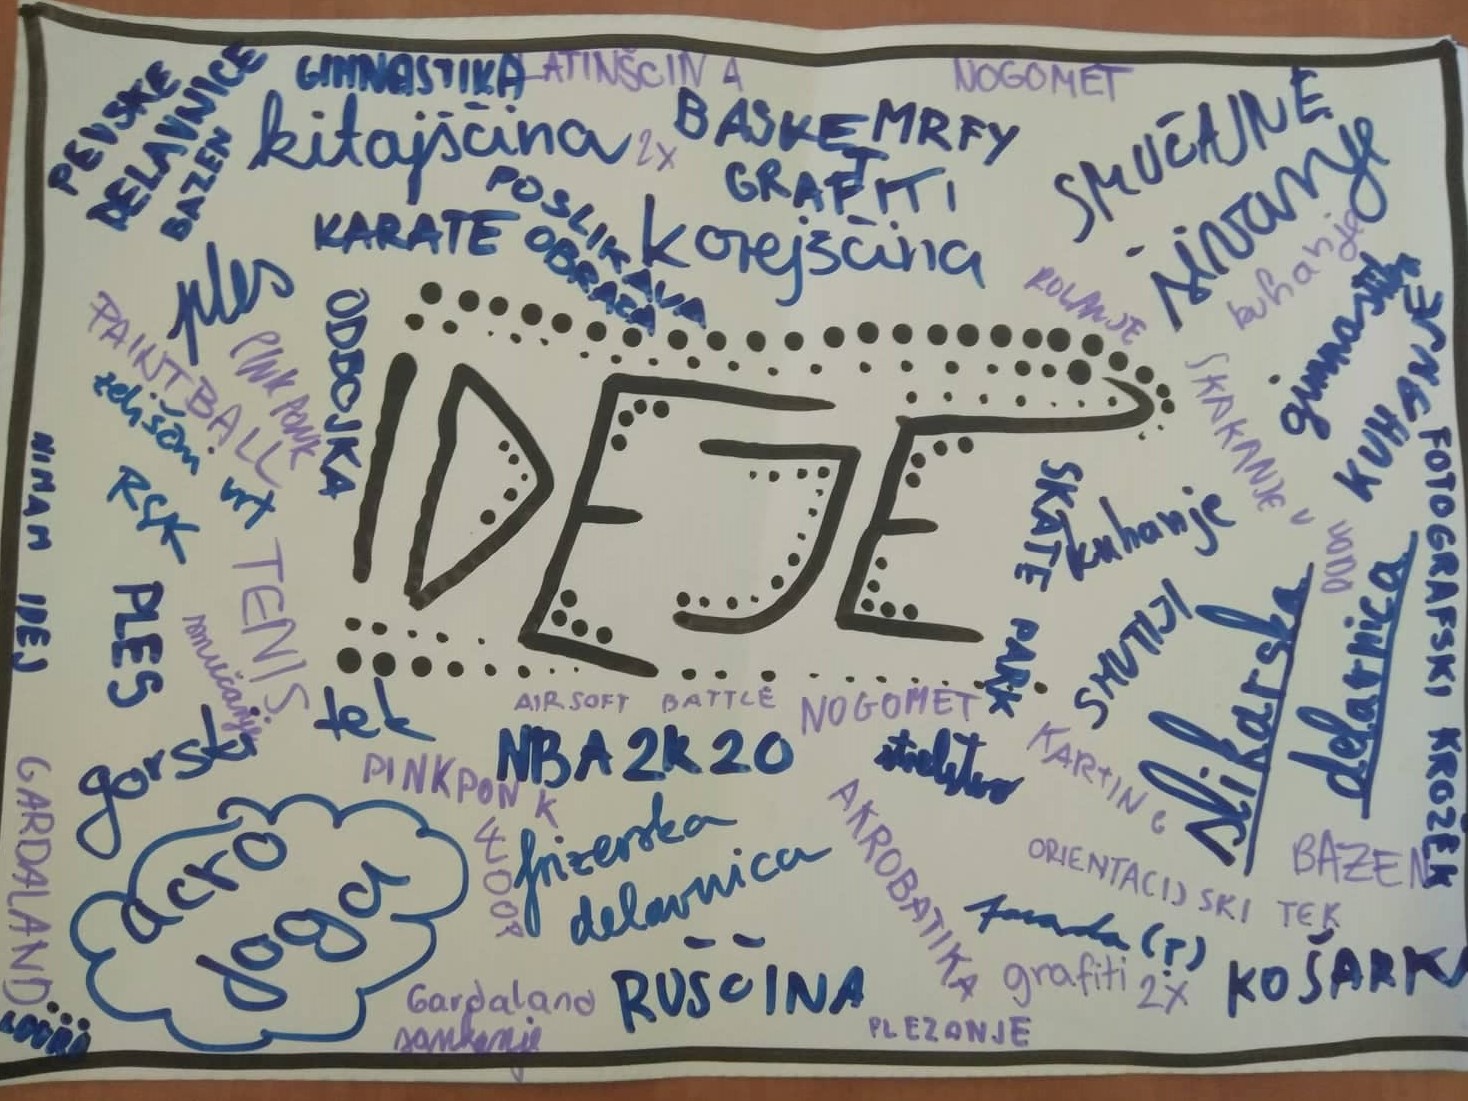 PEVSKE
DELAVNICE
BAZEN
GIMNASTIKA
LATINŠČINA
NOGOMET
kitajščina 2x
BASKET
MRFY
GRAFITI
SMUČANJE
šivanje
kuhanje
POSLIKAVA
OBRAZA
KARATE
korejščina
ROLANJE
gimnastika
ples
PAINTBALL
PINK PONK
ODBOJKA
zeliščni
vrt
SKAKANJE V
vodo
KUHANJE
FOTOGRAFSKI KROŽEK
IDEJE
NIMAM IDEJ
RSK
TENIS
PLES
smučanje
SKATE PARK
kuhanje
SMUTIJI
slikarska
delavnica
gorski
tek
AIRSOFT BATTLE
NOGOMET
NBA 2K20
PINKPONK
strelstvo
KARTING
GARDALAND
acro
joga
frizerska
delavnica
AKROBATIKA
ORIENTACIJSKI TEK
BAZEN
RUŠČINA
grafiti 2x
KOŠARKA
Gardaland
sankanje
PLEZANJE